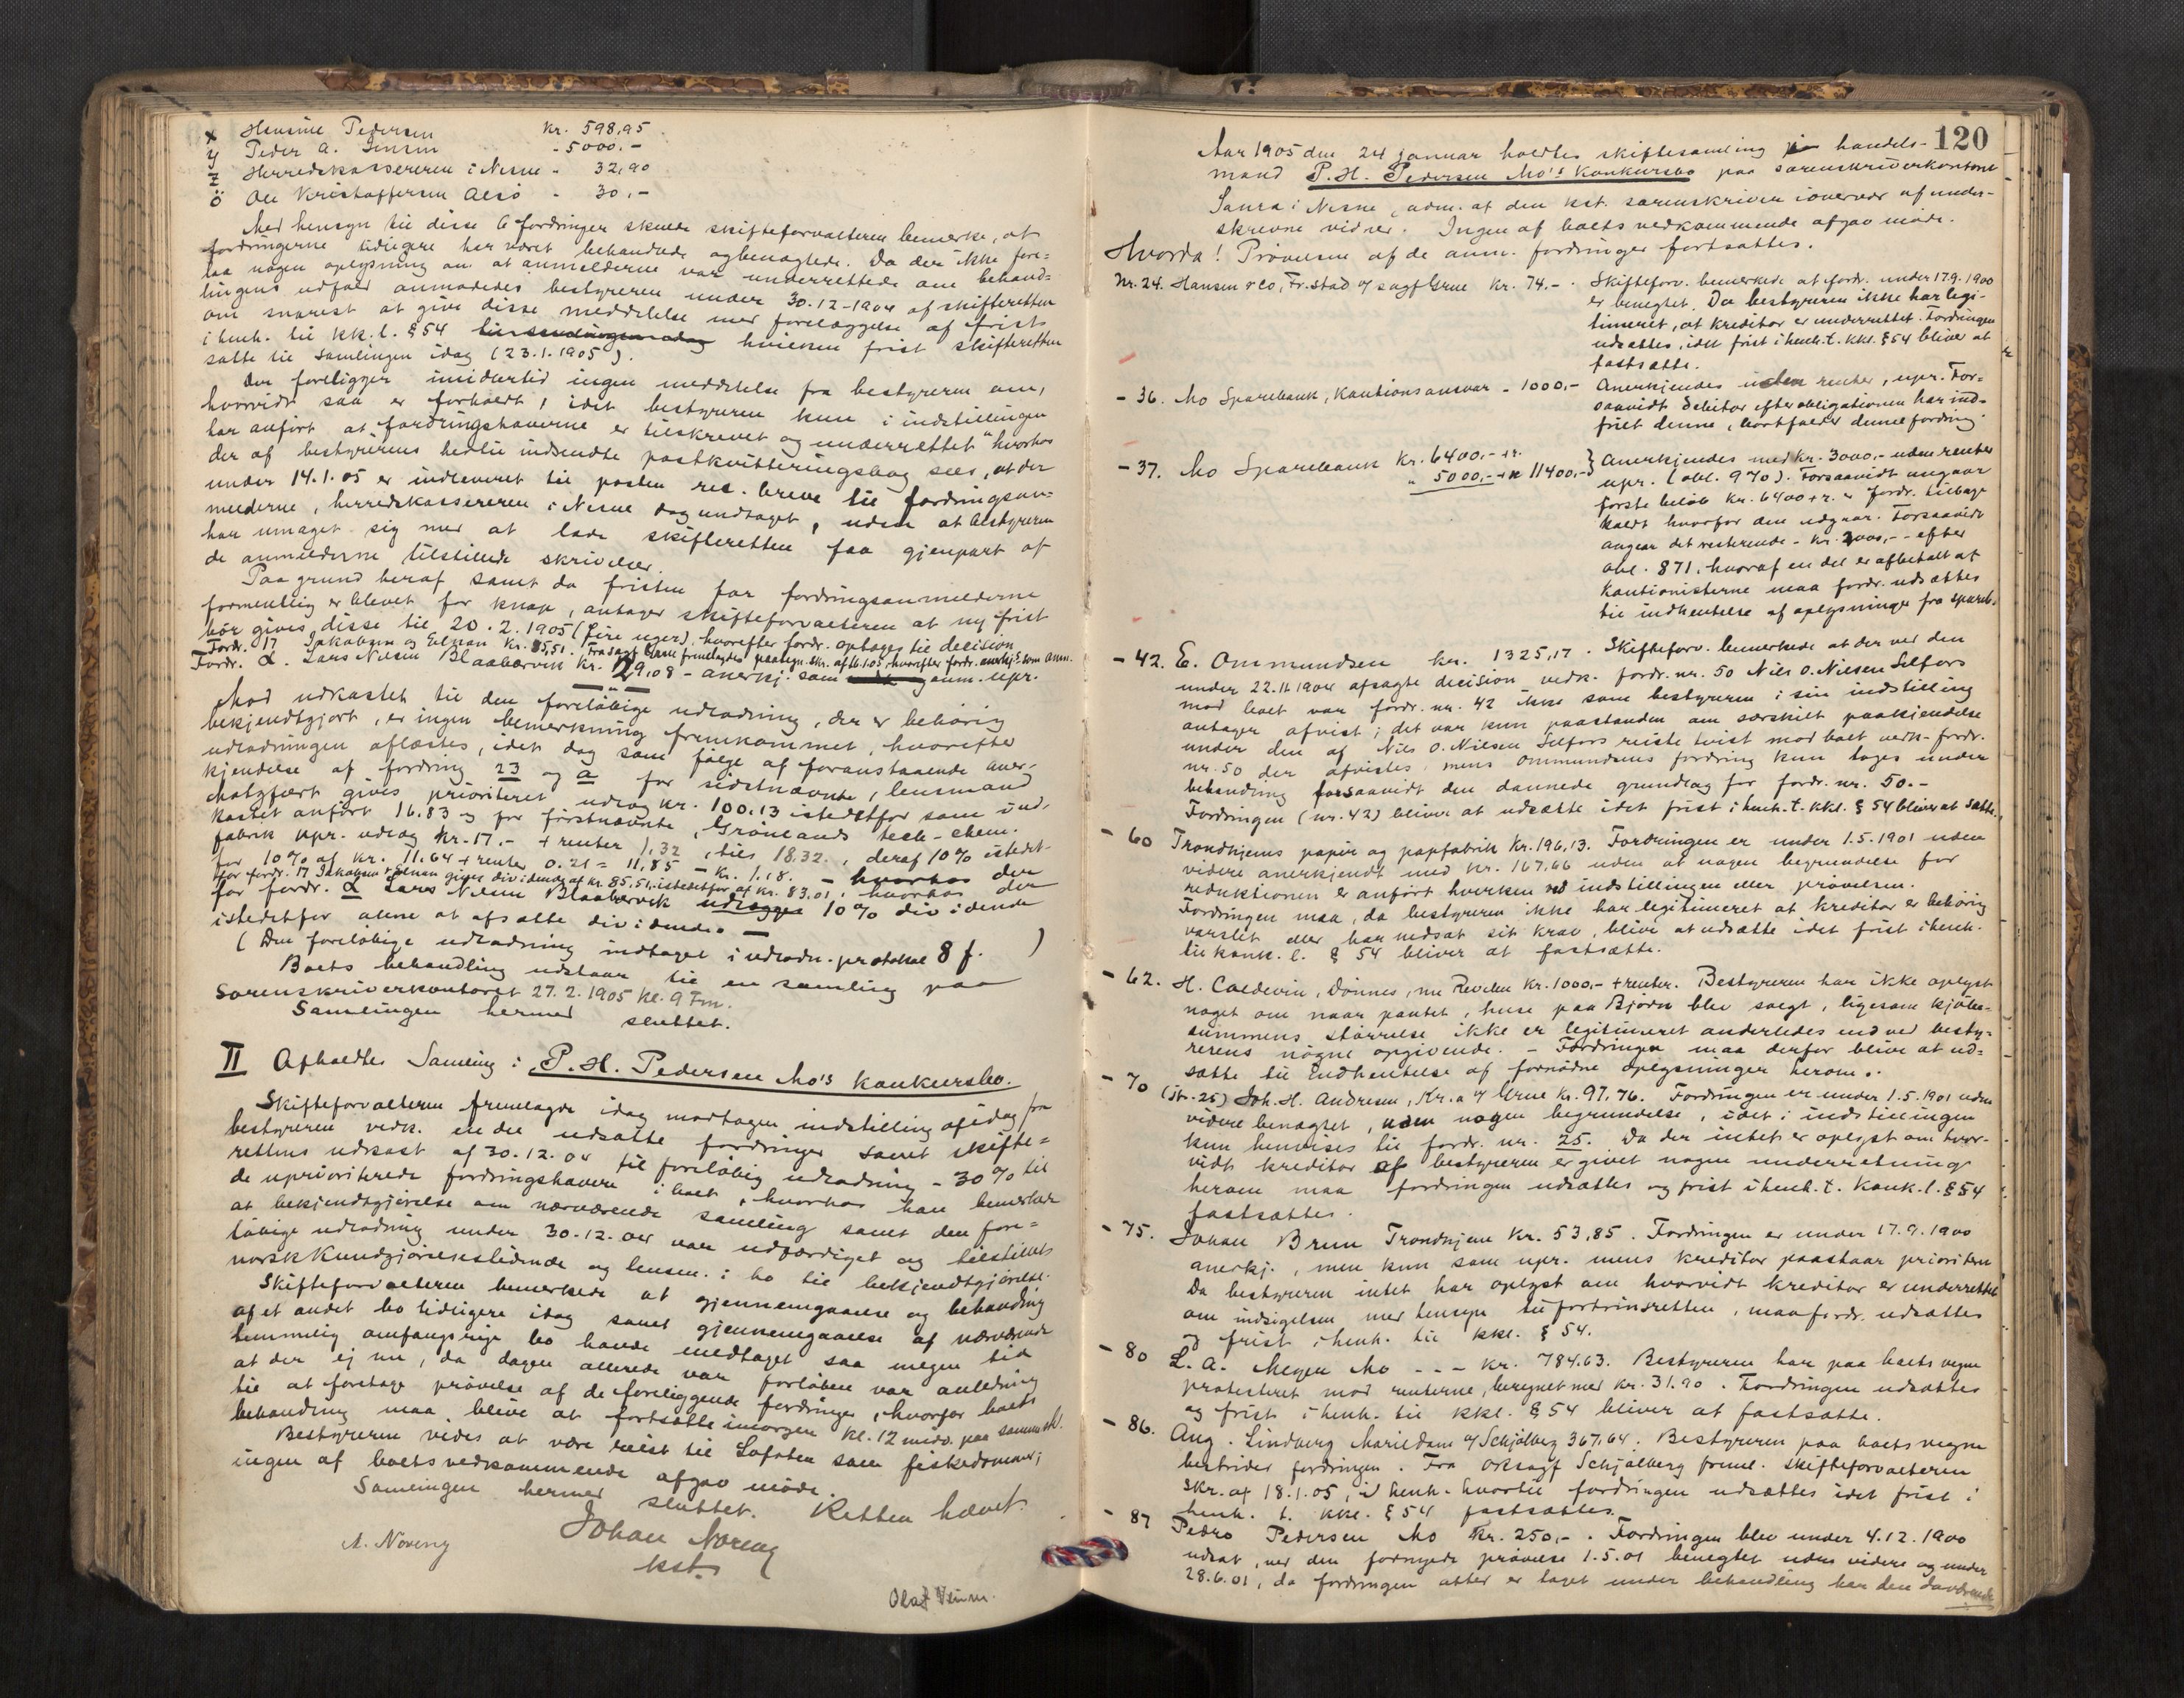 x Hensine Pedersen kr. 598,95
y Peder A. Jensen - 5000.-
z Herredskassereren i Nesne - 32,90
ö Ole Kristoffersen Alsö - 30,-
Med hensyn til disse 6 fordringer skulde skifteforvalteren bemerke, at
fordringerne tidligere har været behandlede og benægtede. Da der ikke fore-
laa nogen oplysning om at anmelderne var underrettede om behand-
lingens udfald anmodedes bestyreren under 30.12-1904 af skifteretten
om snarest at give disse meddelelse med forelæggelse af frist
i henh. til kk.l. §54 hvilken frist skifteretten
satte til samlingen idag (23.1.1905).
Der foreligger imidlertid ingen meddelelse fra bestyreren om,
hvorvidt saa er forholdt, idet bestyreren kun i indstillingen
har anført at fordringshaverne er tilskrevet og underrettet" hvorhos
der af bestyrerens hertil indsendte postkvitteringsbog sees, at der
under 14.1.05 er indleveret til posten rec. breve til fordringsan-
melderne, herredskassereren i Nesne dog undtaget, uden at bestyreren
har umaget sig med at lade skifteretten faa gjenpart af
de anmelderne tilstillede skrivelser.
Paa grund heraf samt da fristen for fordringsanmelderne
formentlig er blevet for knap, antager skifteforvalteren at ny frist
bör gives disse til 20.2.1905 (fire uger), hvorefter fordr. optages til decision
Fordr. 17 Jakobsen og Ellnan kr. 85,51. Fra sagf. Grane fremlagdes paategn. skr. af 16.1.05, hvorefter fordr. anerkj. som anm.
Fordr. α. Lars Nilsen Blaabærvik kr. 29,08 - anerkj. som anm. upr.
Mod udkastet til den foreløbige udlodning, der er behörig
bekjendtgjort, er ingen bemerkning fremkommet, hvorefter
udlodningen aflæstes, idet dog som følge af foranstaaende aner-
kjendelse af fordring 23 og a for sidstnævnte, lensmand
Chatzfært gives prioriteret udlæg kr. 100,13 istedetfor som i ud-
kastet anført 16.83 og for förstnævnte, Grönlands tech-chem.
fabrik upr. udlæg kr. 17.- + renter 1,32, tils 18.32., deraf 10% istedet-
for 10% af kr. 11.64 + renter 0.21 = 11,85 - kr. 1,18. - hvorhos der
for fordr. 17 Jakobsen & Ellnan gives dividende af kr. 85,51, istedetfor af kr. 83,01, hvorhos der
for fordr. α Lars Nilsen Blaabærvik udlægges 10% dividende
istedetfor alene at afsætte dividende.
(Den foreløbige udlodning indtaget i udlodn. protokol 8 f. )
Boets behandling udstaar til en samling paa
Sorenskriverkontoret 27.2.1905 kl. 9 Fm.
Samlingen hermed sluttet.
II Afholdtes Samling i P. H. Pedersen Mo's konkursbo.
Skifteforvalteren fremlagde idag modtagen indstilling af idag fra
bestyreren vedk. en del udsatte fordringer samt skifte-
rettens udkast af 30.12.04 til foreløbig udlodning - 30% til
de uprioriterede fordringshavere i boet, hvorhos han bemerker
at bekjendtgjørelse om nærværende samling samt den fore-
løbige udlodning under 30.12.04 var udfærdiget og tilstillet
norsk Kundgjørelsestidende og lensm. i Mo til bekjendtgjørelse.
Skifteforvalteren bemerkede at gjennemgaaelse og behandling
af et andet bo tidligere idag samt gjennemgaaelse af nærværende
temmelig omfangsrige bo havde medtaget saa megen tid
at der ej nu, da dagen allerede var forløben var anledning
til at foretage prøvelse af de foreliggende fordringer, hvorfor boets
behandling maa blive at fortsætte imorgen kl. 12 midd. paa samme st.
Bestyreren vides at være reist til Lofoten som fiskedommer;
ingen af boets vedkommende afgav møde.
Samlingen hermed sluttet. Retten hævet.
Johan Noreng
kst.
A. Noreng
Olaf Veum.
120
Aar 1905 den 24 januar holdtes skiftesamling i handels-
mand P. H. Pedersen Mo's konkursbo paa sorenskriverkontoret
Sanra i Nesne, adm. af den kst. sorenskriver i overvær af under-
skrevne vidner. Ingen af boets vedkommende afgav møde.
Hvorda! Prøvelsen af de anm. fordringer fortsattes.
Nr. 24. Hansen & Co, Fr.stad v/ sagf Grue kr. 74.- . Skifteforv. bemerkede at fordr. under 17.9.1900
er benegtet. Da bestyreren ikke har legi-
timeret, at kreditor er underrettet. Fordringen
udsættes, idet frist i henh. t. kkl. §54 bliver at
fastsætte.
- 36. Mo Sparebank, Kautionsansvar - 1000,- Anerkjendes uden renter, upr. For-
saavidt debitor efter obligationen har ind-
friet denne, bortfalder denne fordring
- 37. Mo Sparebank kr. 6400.- + r.
" 5000,- + r 11400,- } Anerkjendes med kr. 3000,- uden renter
upr. (obl. 970). Forsaavidt angaar
første beløb kr. 6400 + r. er fordr. tilbage
kaldt hvorfor den udgaar. Forsaavidt
angaar det resterende - kr. 2000,- - efter
obl. 871, hvoraf en del er afbetalt af
kautionisterne maa fordr. udsættes
til indhentelse af oplysninger fra spareb.
- 42. E. Ommundsen kr. 1325,17. Skifteforv. bemerkede at der ved den
under 22.11.1904 afsagte decision vedk. fordr. nr. 50 Nils O. Nielsen Selfors
mod boet var fordr. nr. 42 ikke som bestyreren i sin indstilling
antager afvist; det var kun paastanden om særskilt paakjendelse
under den af Nils O. Nielsen Selfors reiste tvist mod boet vedk. fordr.
nr. 50 der afvistes mens Ommundsens fordring kun toges under
behandling forsaavidt den dannede grundlag for fordr. nr. 50.-
Fordringen (nr. 42) bliver at udsætte idet frist i henh. t. kkl. § 54 bliver at sætte.
- 60 Trondhjems papir og papfabrik kr. 196,13. Fordringen er under 1.5.1901 uden
videre anerkjendt med kr. 167,66 uden at nogen begrundelse for
reduktionen er anført hverken ved indstillingen eller prøvelsen.
Fordringen maa, da bestyreren ikke har legitimeret at kreditor er behörig
varslet eller har nedsat sit krav, blive at udsætte idet frist i henh.
til konk. l. § 54 bliver at fastsætte.
- 62. H. Coldevin, Dönnes, nu Revelen kr. 1000.- + renter. Bestyreren har ikke oplyst
noget om naar pantet, huse paa Bjørn blev solgt, ligesom kjøbe-
summens størrelse ikke er legitimeret anderledes end ved besty-
rerens nøgne opgivende. - Fordringen maa derfor blive at ud-
sætte til indhentelse af fornødne oplysninger herom.
- 70 (jfr. 25) Joh. H. Andresen, Kr.a v/ Grue kr. 97,76. Fordringen er under 1.5.1901 uden
videre benægtet, uden nogen begrundelse, idet i indstillingen
kun henvises til fordr. nr. 25. Da der intet er oplyst om hvor-
vidt kreditor af bestyreren er givet nogen underretning
herom maa fordringen udsættes og frist i henh. t. konk. l. § 54
fastsættes.
- 75. Johan Brun Trondhjem kr. 53,85. Fordringen er under 17.9.1900
anerkj., men kun som upr. mens kreditor paastaar prioriteret
Da bestyreren intet har oplyst om hvorvidt kreditor er underrettet
om indsigelsen med hensyn til fortrinsretten, maa fordr. udsættes
og frist i henh. til kkl. § 54.
- 80 L. A. Meyer Mo - - - kr. 784.63. Bestyreren har paa boets vegne
protesteret mod renterne, beregnet med kr. 31.90. Fordringen udsættes
og frist i henh. til kkl. § 54 bliver at fastsætte.
- 86. Aug. Lindberg Marildam v/ Schjølberg 367,64. Bestyreren paa boets vegne
bestrider fordringen. Fra Orsagf Schjølberg freml. skifteforvalteren
skr. af 18.1.05, i henh. hvortil fordringen udsættes idet frist i
henh. t. kkl. § 54 fastsættes.
- 87 Pedro Pedersen Mo kr. 250,-. Fordringen blev under 4.12.1900
udsat, ved den fornyede prøvelse 1.5.01 benegtet uden videre og under
28.6.01, da fordringen atter er taget under behandling har den daværende